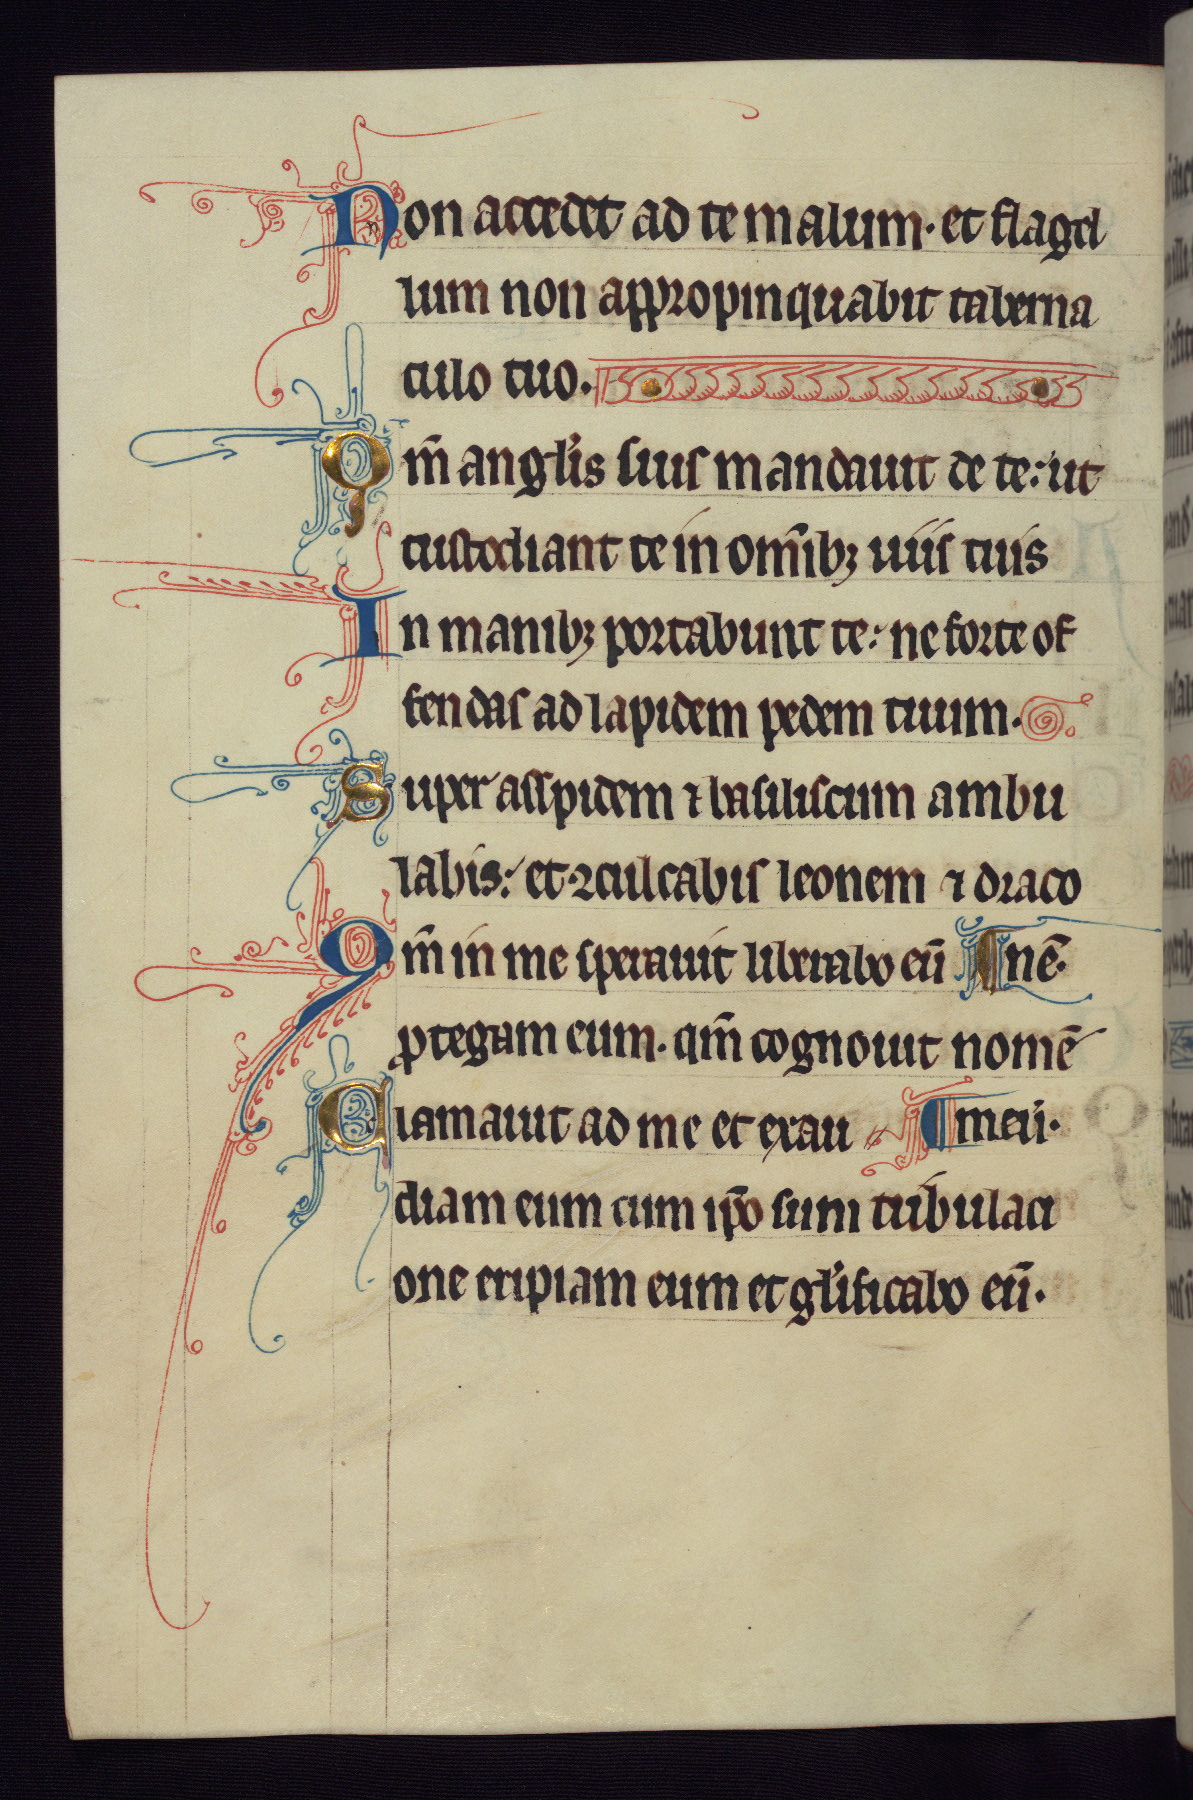 Non accedet ad te malum· et flagel
lum non appropinquabit taberna
culo tuo.
Qm̄ angl̓is suis mandauit de te: ut
custodiant te in om̄ibꝫ uiis tuis
In manibꝫ portabunt te: ne forte of
fendas ad lapidem pedem tuum.
Super asspidem ⁊ basiliscum ambu
labis: et ꝯculcabis leonem ⁊ draco
Qm̄ in me sperauit liberabo eū ¶ nē·
ꝓtegam eum. qm̄ cognouit nomē
Clamauit ad me et exau ¶ meū·
diam eum cum ip̄o sum tribulaci
one eripiam eum et gl̓ificabo eū·